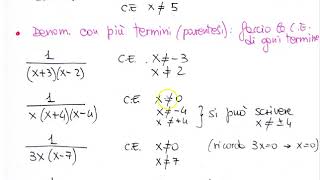 C.E. x ≠ 5
• Denom. con più termini (parentesi): faccio le C.E.
di ogni termine
1/((x+3)(x-2)) C.E. x ≠ -3
x ≠ 2
1/(x(x+4)(x-4)) C.E. x ≠ 0
x ≠ -4
x ≠ +4 } si può scrivere
x ≠ ±4
1/(3x(x-7)) C.E. x ≠ 0 (ricorda 3x=0 → x=0)
x ≠ 7